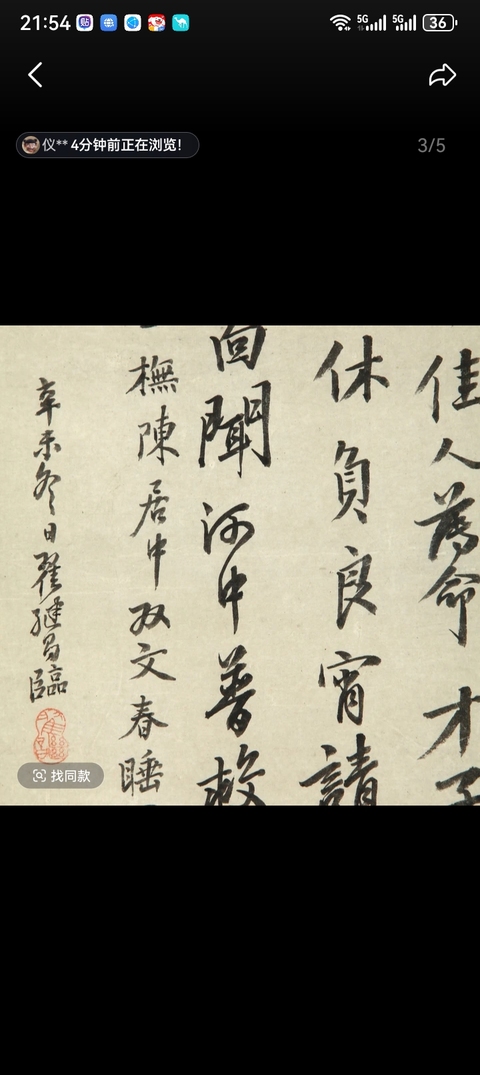 21:54
5G
5G
36
仪** 4分钟前正在浏览！
3/5
佳人薄命才子
休負良宵請
回聞河中普救
橅陳居中双文春睡
辛未冬日翟繼昌臨
找同款